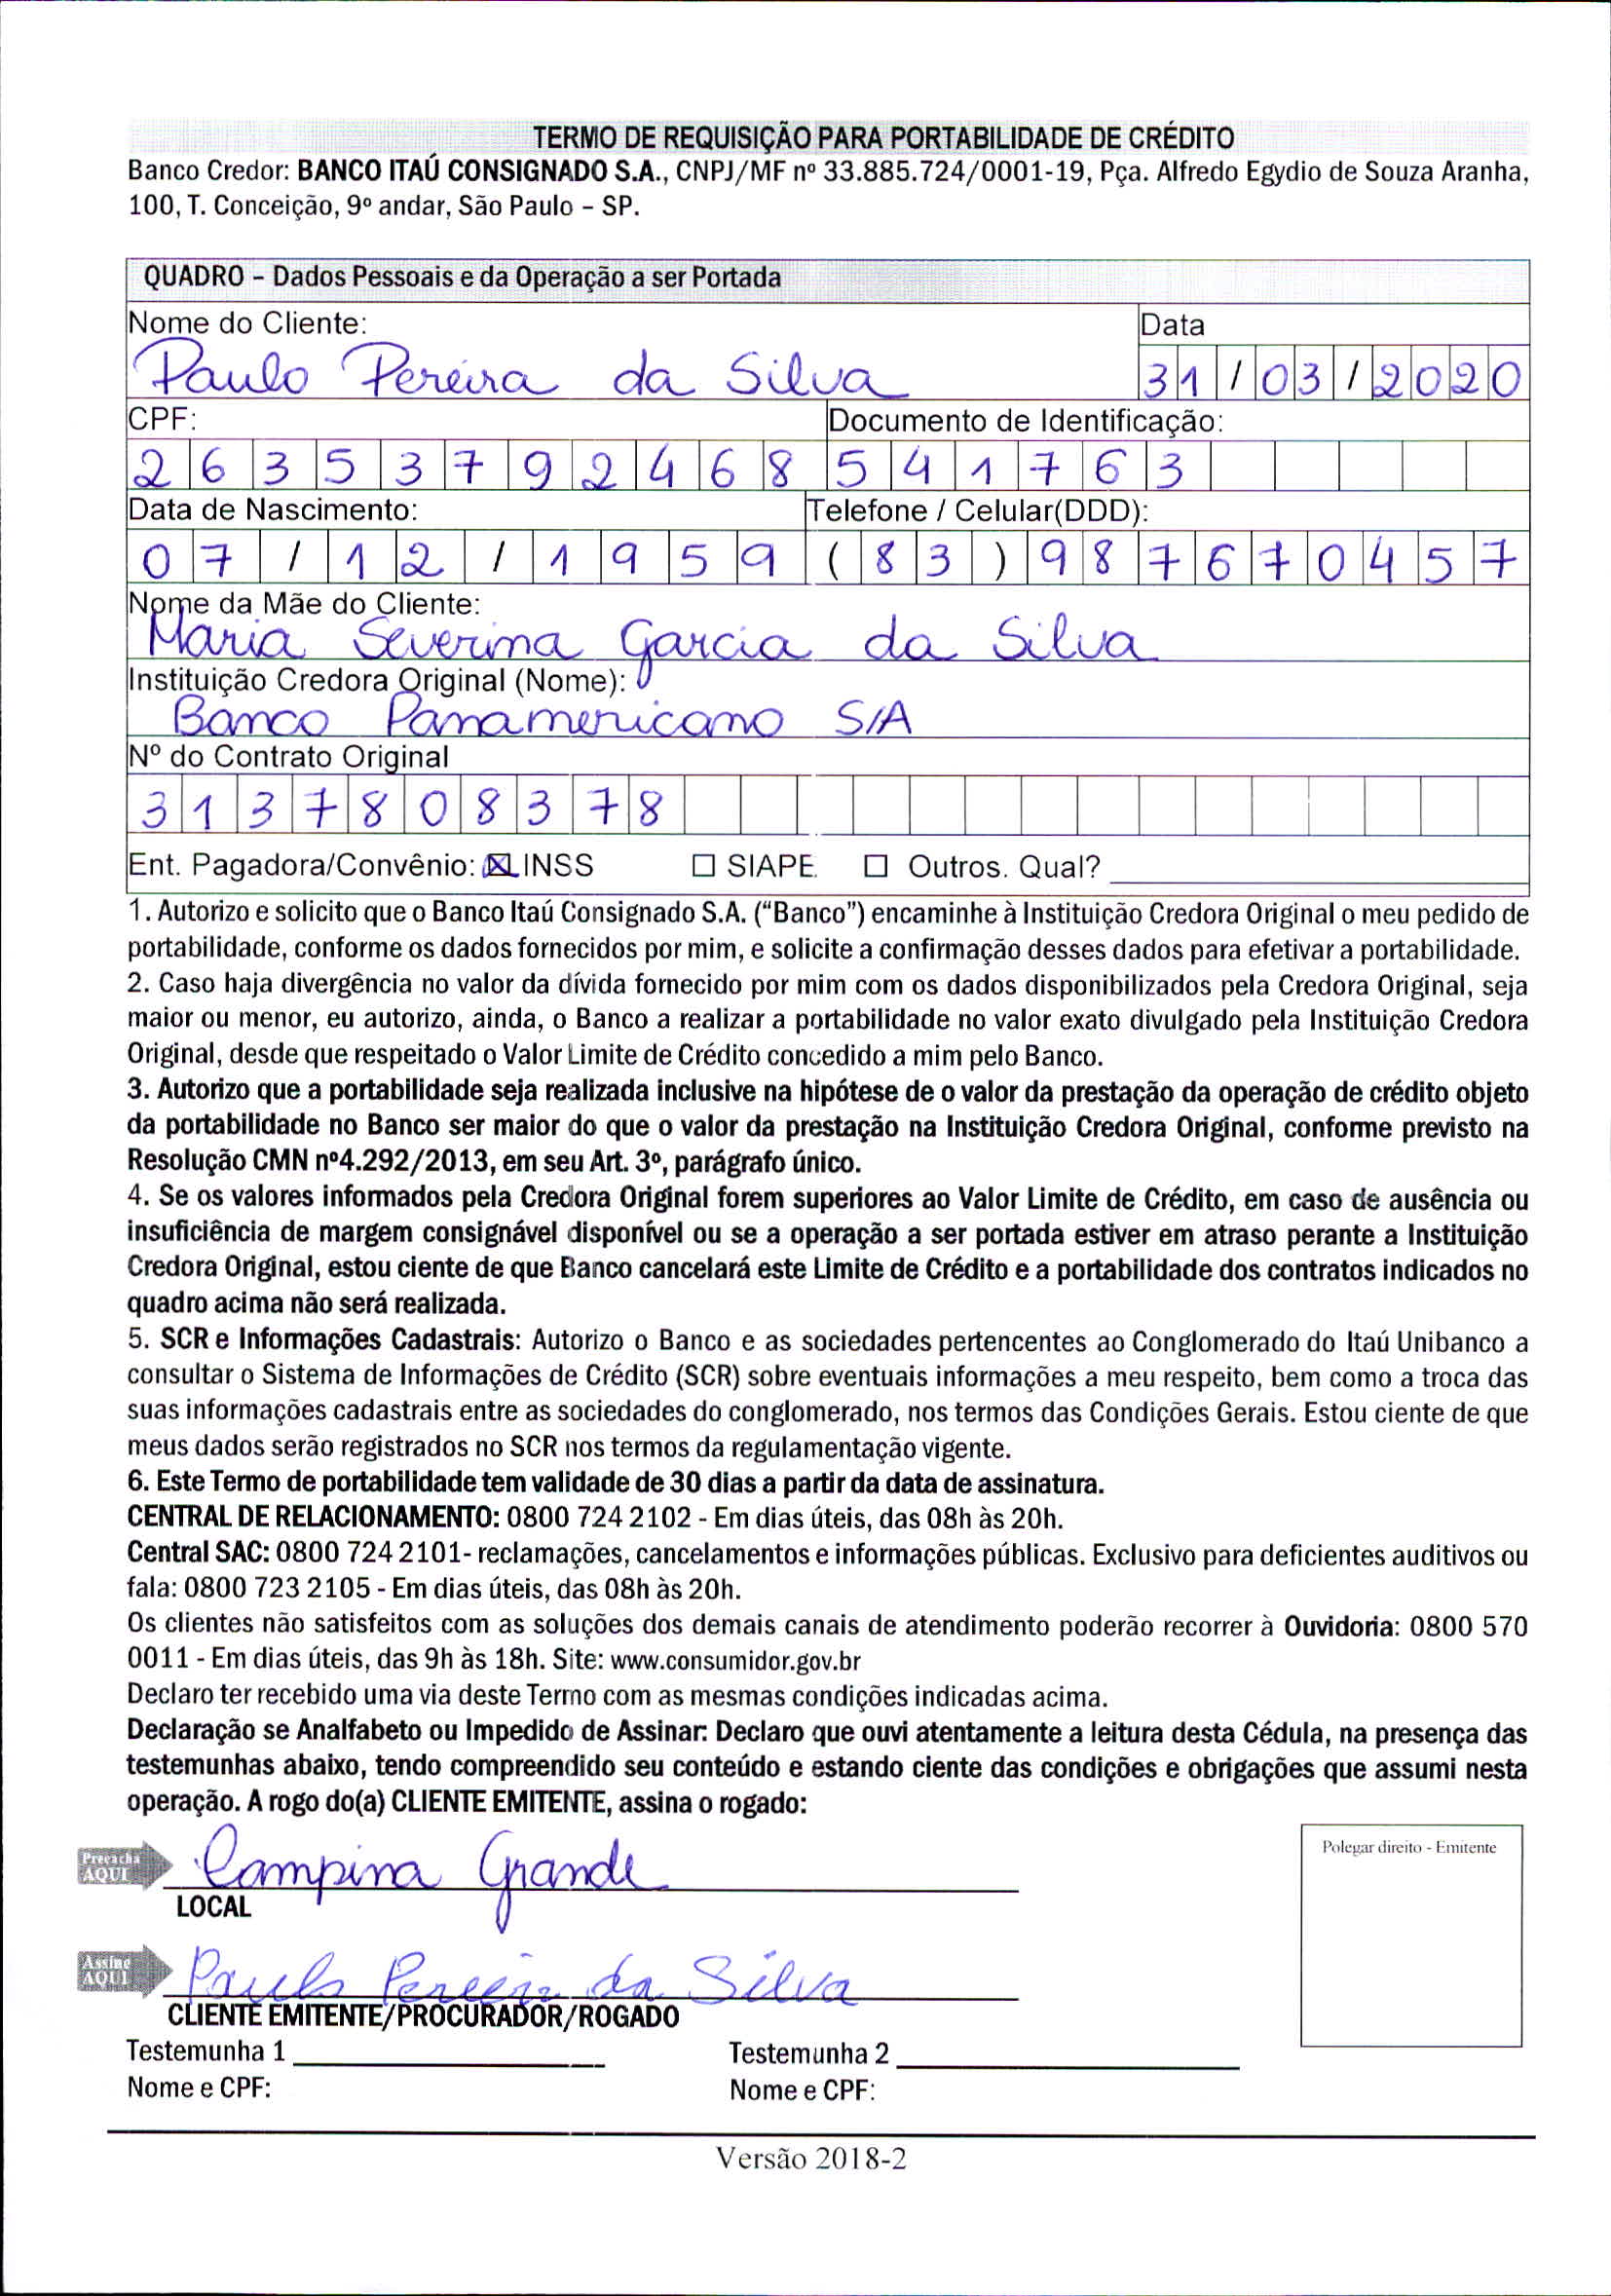 TERMO DE REQUISIÇÃO PARA PORTABILIDADE DE CRÉDITO
Banco Credor: BANCO ITAÚ CONSIGNADO S.A., CNPJ/MF nº 33.885.724/0001-19, Pça. Alfredo Egydio de Souza Aranha,
100, T. Conceição, 9º andar, São Paulo – SP.
QUADRO – Dados Pessoais e da Operação a ser Portada
Nome do Cliente: Data
Paulo Pereira da Silva 31/03/2020
CPF: Documento de Identificação:
26353792468 541763
Data de Nascimento: Telefone / Celular(DDD):
07/12/1959 (83)987670457
Nome da Mãe do Cliente:
Maria Severina Garcia da Silva
Instituição Credora Original (Nome):
Banco Panamericano S/A
Nº do Contrato Original
3137808378
Ent. Pagadora/Convênio: ☒ INSS ☐ SIAPE. ☐ Outros. Qual?
1. Autorizo e solicito que o Banco Itaú Consignado S.A. (“Banco”) encaminhe à Instituição Credora Original o meu pedido de
portabilidade, conforme os dados fornecidos por mim, e solicite a confirmação desses dados para efetivar a portabilidade.
2. Caso haja divergência no valor da dívida fornecido por mim com os dados disponibilizados pela Credora Original, seja
maior ou menor, eu autorizo, ainda, o Banco a realizar a portabilidade no valor exato divulgado pela Instituição Credora
Original, desde que respeitado o Valor Limite de Crédito concedido a mim pelo Banco.
3. Autorizo que a portabilidade seja realizada inclusive na hipótese de o valor da prestação da operação de crédito objeto
da portabilidade no Banco ser maior do que o valor da prestação na Instituição Credora Original, conforme previsto na
Resolução CMN nº4.292/2013, em seu Art. 3º, parágrafo único.
4. Se os valores informados pela Credora Original forem superiores ao Valor Limite de Crédito, em caso de ausência ou
insuficiência de margem consignável disponível ou se a operação a ser portada estiver em atraso perante a Instituição
Credora Original, estou ciente de que Banco cancelará este Limite de Crédito e a portabilidade dos contratos indicados no
quadro acima não será realizada.
5. SCR e Informações Cadastrais: Autorizo o Banco e as sociedades pertencentes ao Conglomerado do Itaú Unibanco a
consultar o Sistema de Informações de Crédito (SCR) sobre eventuais informações a meu respeito, bem como a troca das
suas informações cadastrais entre as sociedades do conglomerado, nos termos das Condições Gerais. Estou ciente de que
meus dados serão registrados no SCR nos termos da regulamentação vigente.
6. Este Termo de portabilidade tem validade de 30 dias a partir da data de assinatura.
CENTRAL DE RELACIONAMENTO: 0800 724 2102 - Em dias úteis, das 08h às 20h.
Central SAC: 0800 724 2101- reclamações, cancelamentos e informações públicas. Exclusivo para deficientes auditivos ou
fala: 0800 723 2105 - Em dias úteis, das 08h às 20h.
Os clientes não satisfeitos com as soluções dos demais canais de atendimento poderão recorrer à Ouvidoria: 0800 570
0011 - Em dias úteis, das 9h às 18h. Site: www.consumidor.gov.br
Declaro ter recebido uma via deste Termo com as mesmas condições indicadas acima.
Declaração se Analfabeto ou Impedido de Assinar: Declaro que ouvi atentamente a leitura desta Cédula, na presença das
testemunhas abaixo, tendo compreendido seu conteúdo e estando ciente das condições e obrigações que assumi nesta
operação. A rogo do(a) CLIENTE EMITENTE, assina o rogado:
Polegar direito - Emitente
Preencha AQUI Campina Grande
LOCAL
Assine AQUI Paulo Pereira da Silva
CLIENTE EMITENTE/PROCURADOR/ROGADO
Testemunha 1 Testemunha 2
Nome e CPF: Nome e CPF:
Versão 2018-2